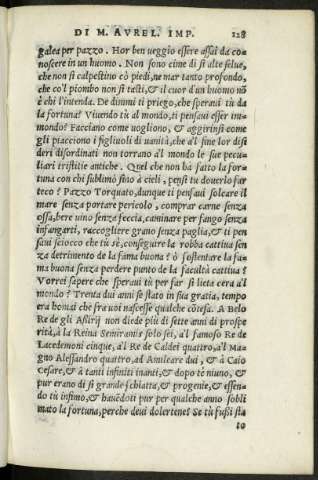 DI M. AVREL. IMP. 128
galea per pazzo. Hor ben ueggio essere assai da co=
noscere in un huomo. Non sono cime di si alte selue,
che non si calpestino cò piedi, ne mar tanto profondo,
che co'l piombo non si tasti, & il cuor d'un huomo nõ
è chi l'intenda. De dimmi ti priego, che sperani tù da
la fortuna? Viuendo tù al mondo, ti pensaui esser im=
mondo? Facciano come uogliono, & aggirinsi come
gli piacciono i figliuoli di uanità, che al fine lor disi
deri disordinati non torrano a'l mondo le sue pecu=
liari tristitie antiche. Quel che non ha fatto la for=
tuna con chi sublimò sino à cieli, pensi tu douerlo far
teco? Pazzo Torquato, dunque ti pensaui solcare il
mare senza portare pericolo, comprar carne senza
ossa, bere uino senza feccia, caminare per fango senza
infangarti, raccogliere grano senza paglia, & ti pen
saui sciocco che tù sè, conseguire la robba cattiua sen
za detrimento de la fama buona? ò sostentare la fa=
ma buona senza perdere punto de la facultà cattiua?
Vorrei sapere che speraui tù per far si lieta cera al
mondo? Trenta dui anni sè stato in sua gratia, tempo
era homai che fra uoi nascesse qualche cõtesa. A Belo
Re de gli Assirij non diede piú di sette anni di prospe
rità, à la Reina Semiramis solo sei, a'l famoso Re de
Lacedemoni cinque, a'l Re de Caldei quattro, a'l Ma=
gno Alessandro quattro, ad Amilcare dui, & à Caio
Cesare, & à tanti infiniti inanti, & dopo tè niuno, &
pur erano di si grande schiatta, & progenie, & essen=
do tù infimo, & hauẽdoti pur per qualche anno subli
mato la fortuna, perche deui dolertene? Se tù fußi sta
to